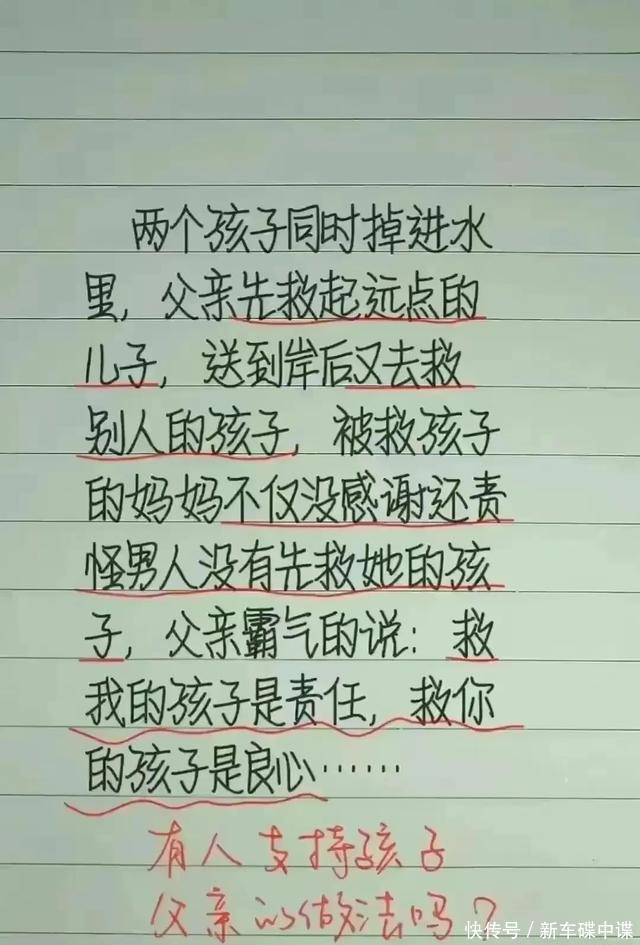 两个孩子同时掉进水
里，父亲先救起远点的
儿子，送到岸后又去救
别人的孩子，被救孩子
的妈妈不仅没感谢还责
怪男人没有先救她的孩
子，父亲霸气的说：救
我的孩子是责任，救你
的孩子是良心……
有人支持孩子
父亲的做法吗？
快传号／新车碟中谍